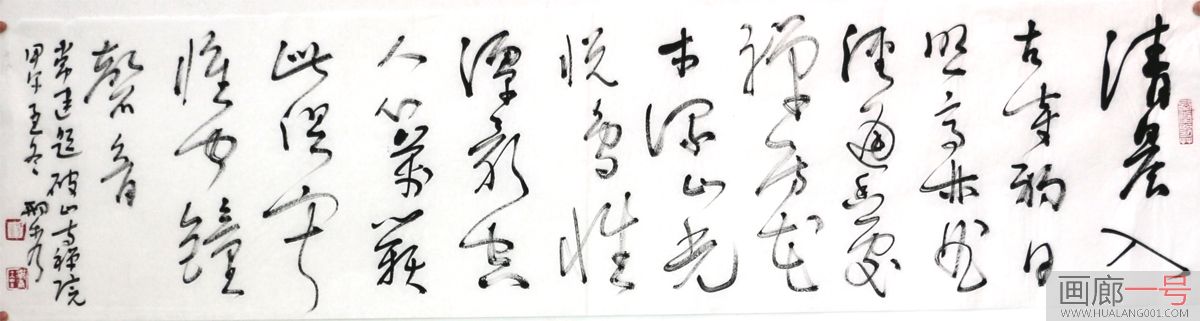 清晨入
古寺初日
照高林曲
徑通幽處
禪房花
木深山光
悦鳥性
潭影空
人心萬籟
此俱寂
惟聞鐘
磬音
常建題破山寺禪院
甲午冬
画廊一号
WWW.HUALANG001.COM